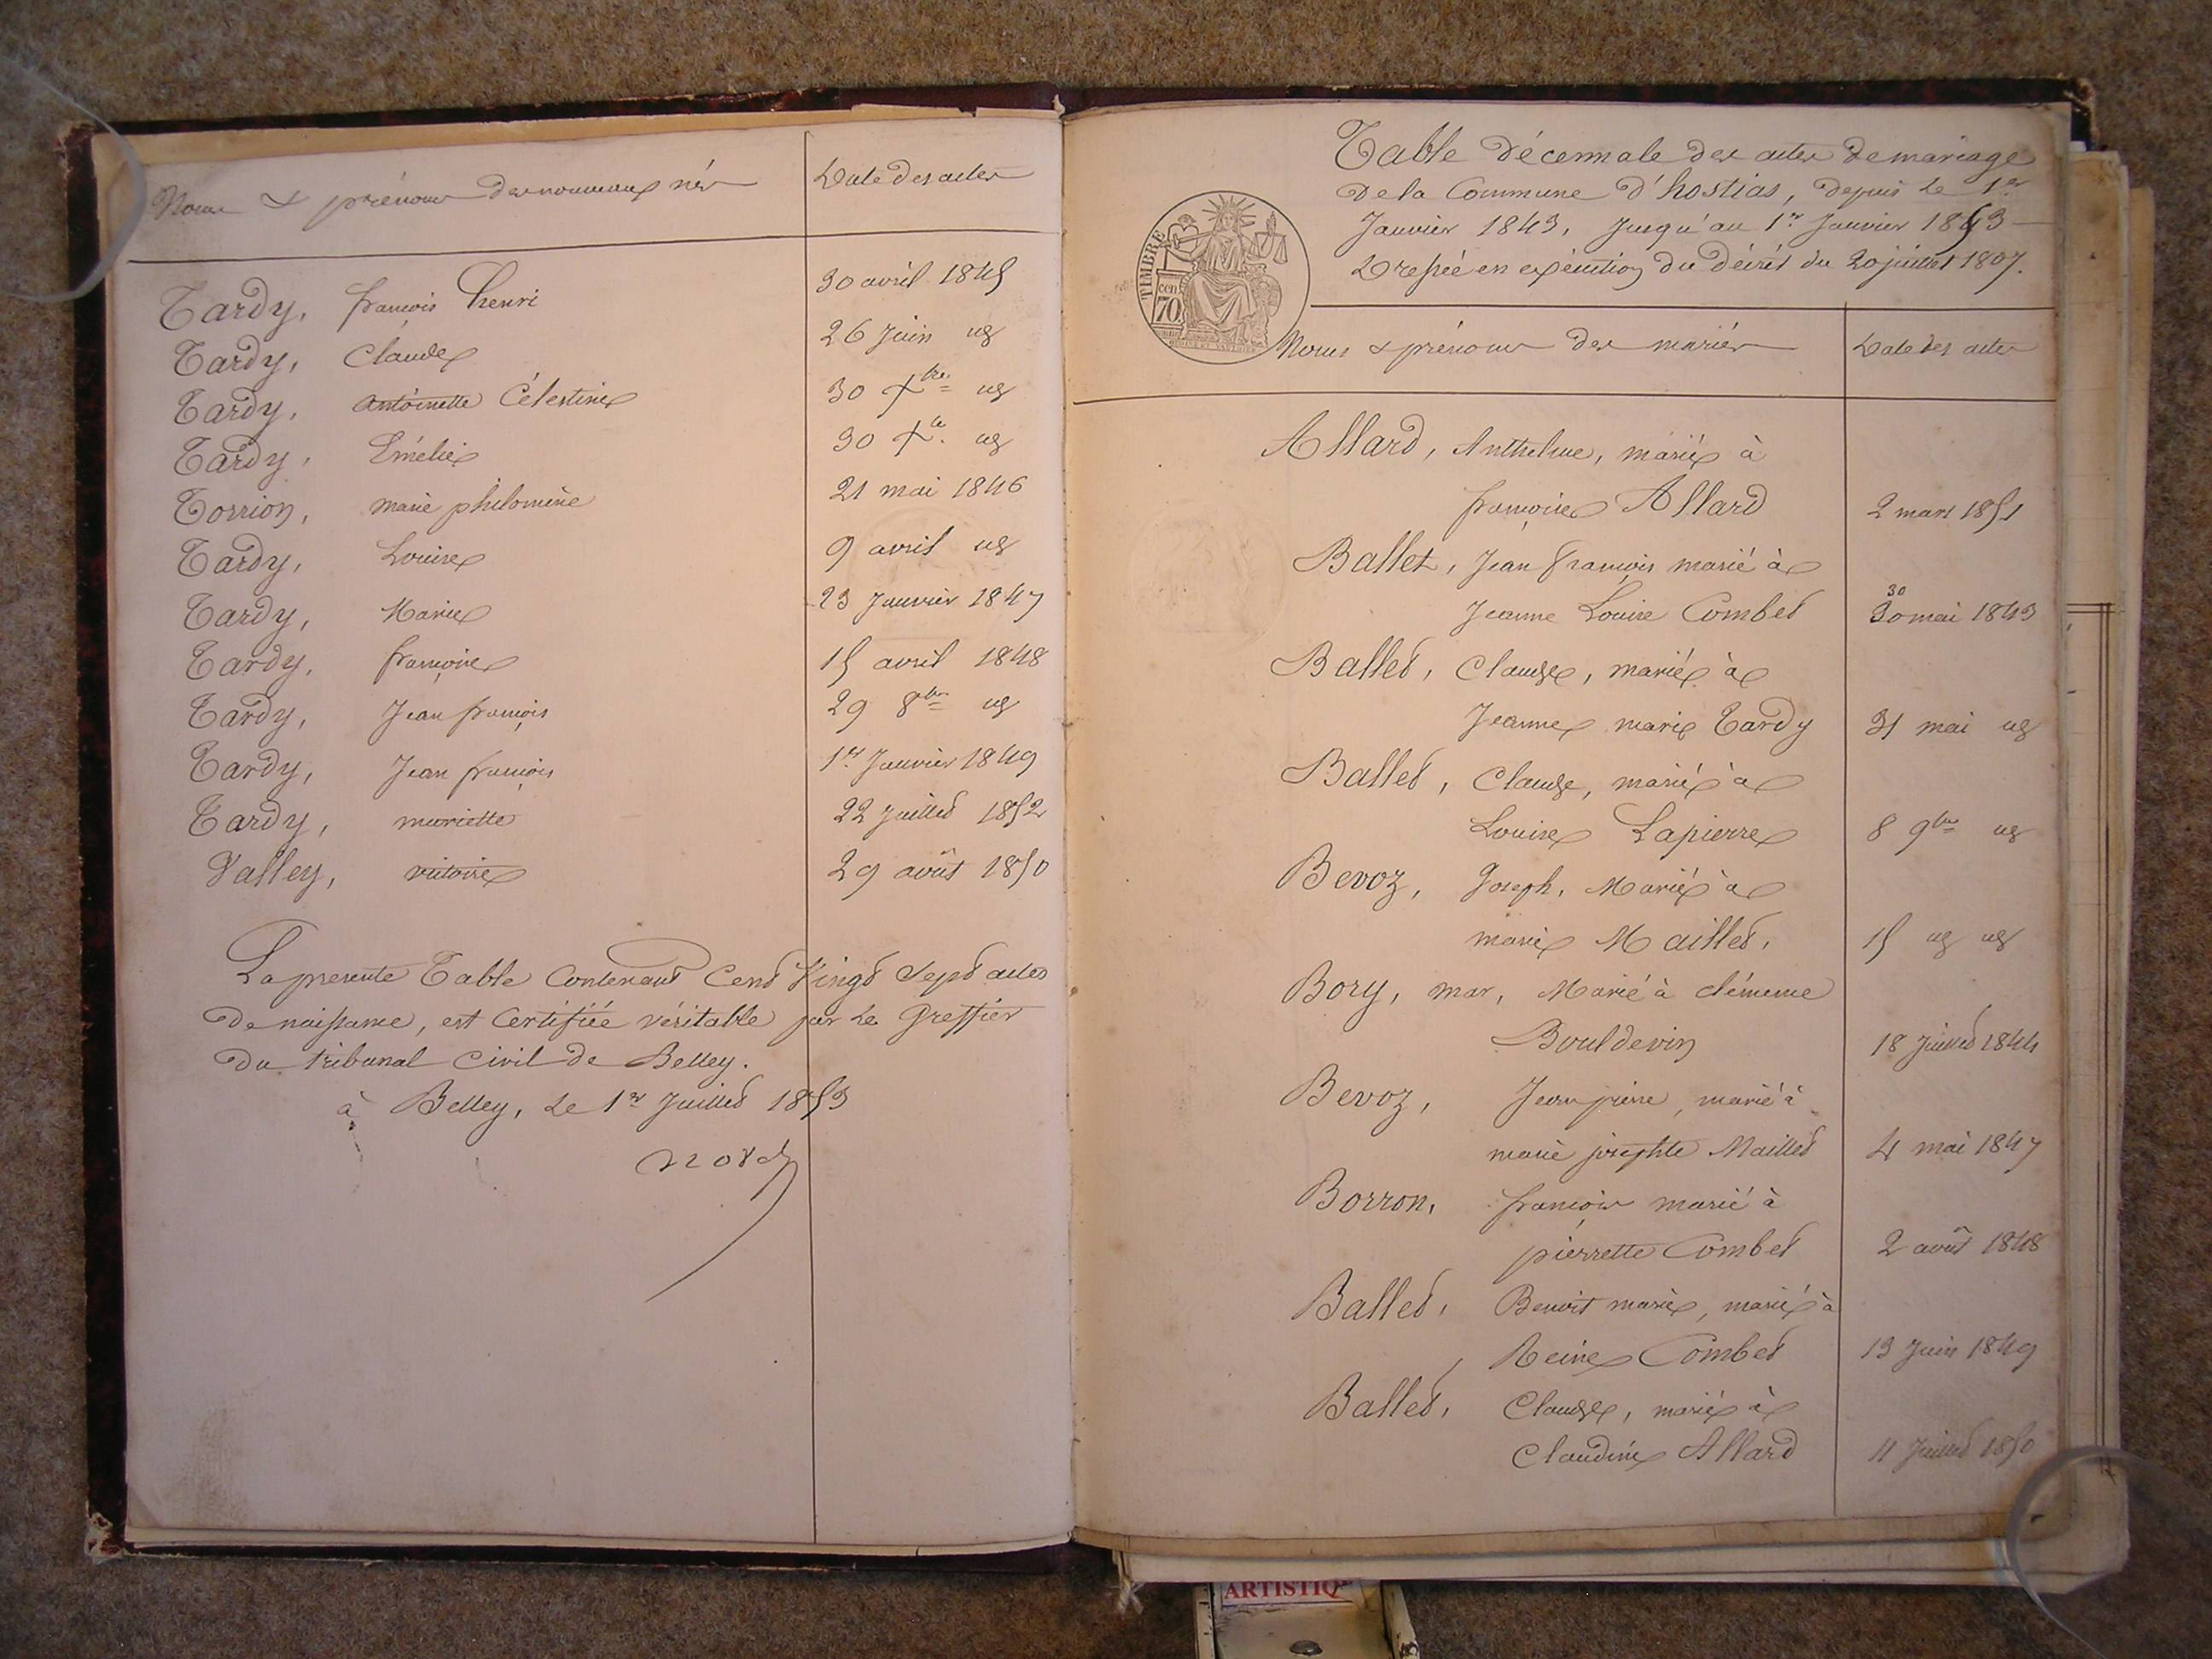 Noms & prénoms des nouveaux nés Date des actes
Tardy, françois henri 30 avril 1845
Tardy, Claude 26 Juin ug
Tardy, antoinette Célestine 30 Xbre ug
Tardy, Emélie 30 Xbre ug
Torrion, marie philomène 21 mai 1846
Tardy, Louise 9 avril ug
Tardy, Marie 23 Janvier 1847
Tardy, françoise 15 avril 1848
Tardy, Jean françois 29 8bre ug
Tardy, Jean françois 1er Janvier 1849
Tardy, mariette 22 Juillet 1852
Valley, victoire 29 août 1850
La presente Table Contenant Cent Vingt Sept actes
de naissance, est Certifiée véritable par Le Greffier
du tribunal Civil de Belley.
à Belley, Le 1er Juillet 1853
Table décennale des actes de mariage
de la Commune d'hostias, depuis Le 1er
Janvier 1843, Jusqu'au 1er Janvier 1853
Dressée en exécution du décrêt du 20 juillet 1807.
TIMBRE
70 cen
Noms & prénoms des mariés Date des actes
Allard, Anthelme, marié à
françoise Allard 2 mars 1851
Ballet, Jean François marié à
30
Jeanne Louise Combet 30 mai 1843
Ballet, Claude, marié à
Jeanne marie Tardy 31 mai ug
Ballet, Claude, marié à
Louise Lapierre 8 9bre ug
Bevoz, Joseph, Marié à
marie Maillet, 15 ug ug
Bory, mar, Marié à clémence
Bouldevin 18 Juillet 1844
Bevoz, Jean pierre, marié à
marie josephte Maillet 4 mai 1847
Borron, françois marié à
pierrette Combet 2 août 1848
Ballet, Benoit marie, marié à
Reine Combet 13 Juin 1849
Ballet, Claude, marié à
Claudine Allard 11 Juillet 1850
ARTISTIQ